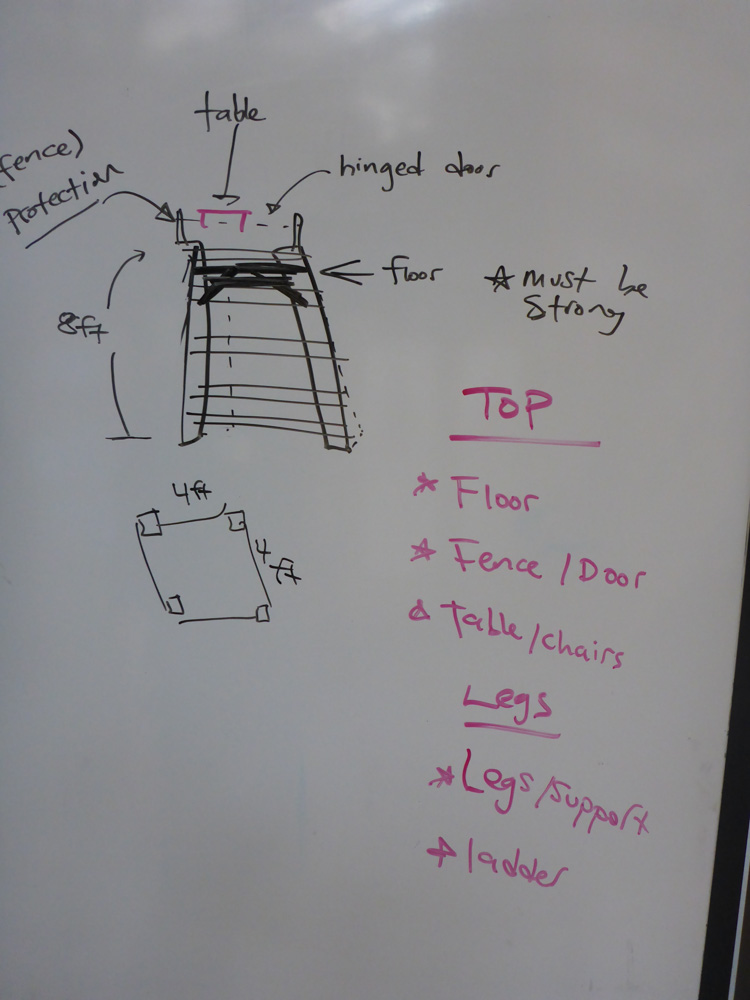 table
(fence)
Protection
hinged door
floor
* must be
strong
8ft
4ft
4
ft
TOP
* Floor
* Fence / Door
* Table/chairs
Legs
* Legs/Support
* ladder